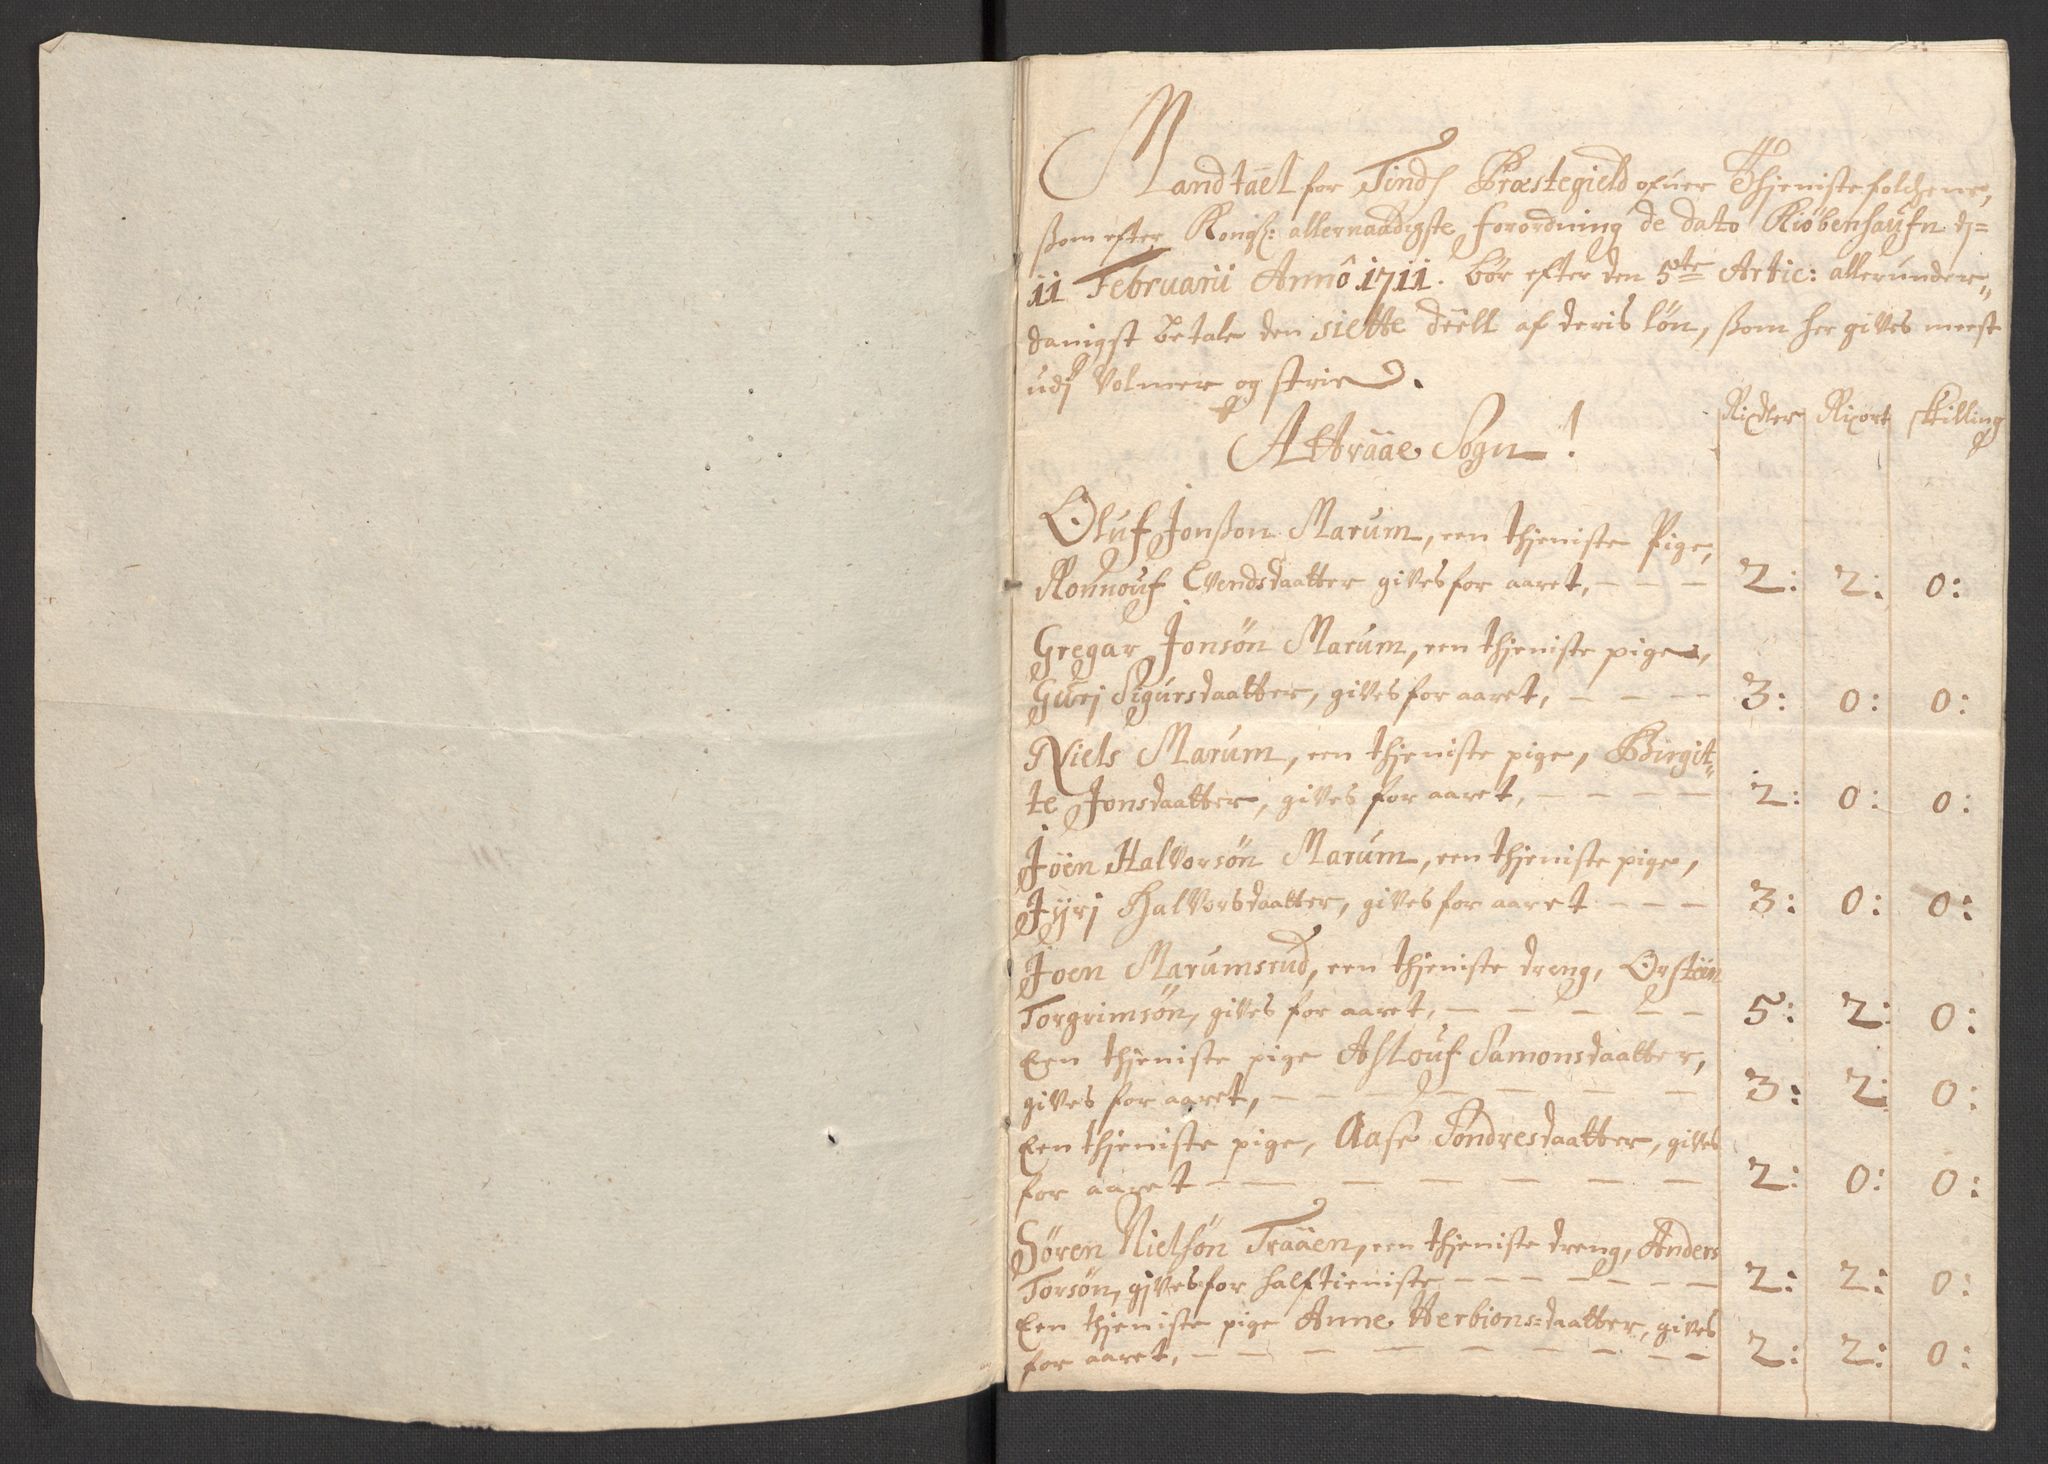 Mandtael for Tinds Præstegield ofuer Thjenistefolchene,
som efter Kongl: allernaadigste forordning de dato Kiøbenhaufn d:
11 Februarii Anno 1711. bør efter den 5te Artic: allerunder„
danigst betale den siette deell af deris løn, som her gives meest
udj Volmer og strie.
Rixdler Rixort skilling
Attraae Sogn!
Oluf Jonsøn Marum, een thjeniste Pige,
Ronnouf Evendsdaatter gives for aaret, - - - 2: 2: 0:
Gregar Jonsøn Marum, een thjeniste pige,
Gurj Sigursdaatter, gives for aaret, - - - - 3: 0: 0:
Niels Marum, een thjeniste pige, Birgit„
te Jonsdaatter, gives for aaret, - - - - 2: 0: 0:
Joen Halvorsøn Marum, een thjeniste pige,
Jyrj Halvorsdaatter, gives for aaret - - - 3: 0: 0:
Joen Marumsrud, een thjeniste dreng, Østein
Torgrimsøn, gives for aaret, - - - - - 5: 2: 0:
Een thjeniste pige Aslouf Samonsdaatter,
gives for aaret, - - - - - - - 3: 2: 0:
Een thjeniste pige, Aase Tondresdaatter, gives
for aaret - - - - - - - - 2: 0: 0:
Søren Nielsøn Traaen, een thjeniste dreng, Anders
Torsøn, gives for half tieniste - - - - - - - 2: 2: 0:
Een thjeniste pige Anne Herbions=daatter, gives
for aaret, - - - - - - - - - 2: 2: 0: